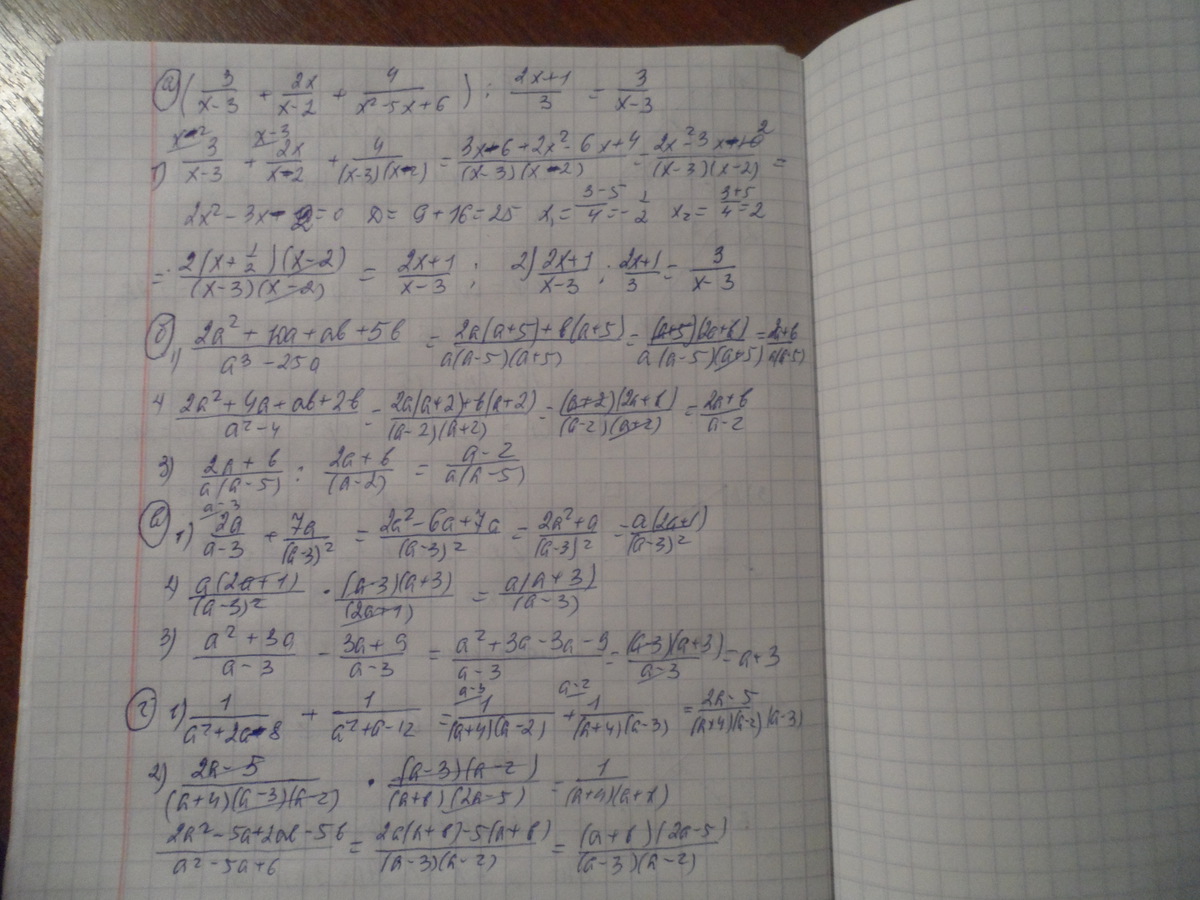 а) ( 3/(x-3) + 2x/(x-2) + 4/(x²-5x+6) ) : (2x+1)/3 = 3/(x-3)
x-2 x-3
1) 3/(x-3) + 2x/(x-2) + 4/((x-3)(x-2)) = (3x-6+2x²-6x+4)/((x-3)(x-2)) = (2x²-3x-2)/((x-3)(x-2)) =
2x²-3x-2=0 D= 9+16=25 x₁= (3-5)/4 = -1/2 x₂= (3+5)/4 =2
= 2(x+1/2)(x-2)/((x-3)(x-2)) = (2x+1)/(x-3) ; 2) (2x+1)/(x-3) : (2x+1)/3 = 3/(x-3)
б) 1) (2a²+10a+ab+5b)/(a³-25a) = (2a(a+5)+b(a+5))/(a(a-5)(a+5)) = (a+5)(2a+b)/(a(a-5)(a+5)) = (2a+b)/(a(a-5))
2) (2a²+4a+ab+2b)/(a²-4) = (2a(a+2)+b(a+2))/((a-2)(a+2)) = (a+2)(2a+b)/((a-2)(a+2)) = (2a+b)/(a-2)
3) (2a+b)/(a(a-5)) : (2a+b)/(a-2) = (a-2)/(a(a-5))
a-3
в) 1) 2a/(a-3) + 7a/(a-3)² = (2a²-6a+7a)/(a-3)² = (2a²+a)/(a-3)² = a(2a+1)/(a-3)²
2) a(2a+1)/(a-3)² · (a-3)(a+3)/(2a+1) = a(a+3)/(a-3)
3) (a²+3a)/(a-3) - (3a+9)/(a-3) = (a²+3a-3a-9)/(a-3) = (a-3)(a+3)/(a-3) = a+3
a-3 a-2
г) 1) 1/(a²+2a-8) + 1/(a²+a-12) = 1/((a+4)(a-2)) + 1/((a+4)(a-3)) = (2a-5)/((a+4)(a-2)(a-3))
2) (2a-5)/((a+4)(a-3)(a-2)) · (a-3)(a-2)/((a+b)(2a-5)) = 1/((a+4)(a+b))
(2a²-5a+2ab-5b)/(a²-5a+6) = (2a(a+b)-5(a+b))/((a-3)(a-2)) = (a+b)(2a-5)/((a-3)(a-2))